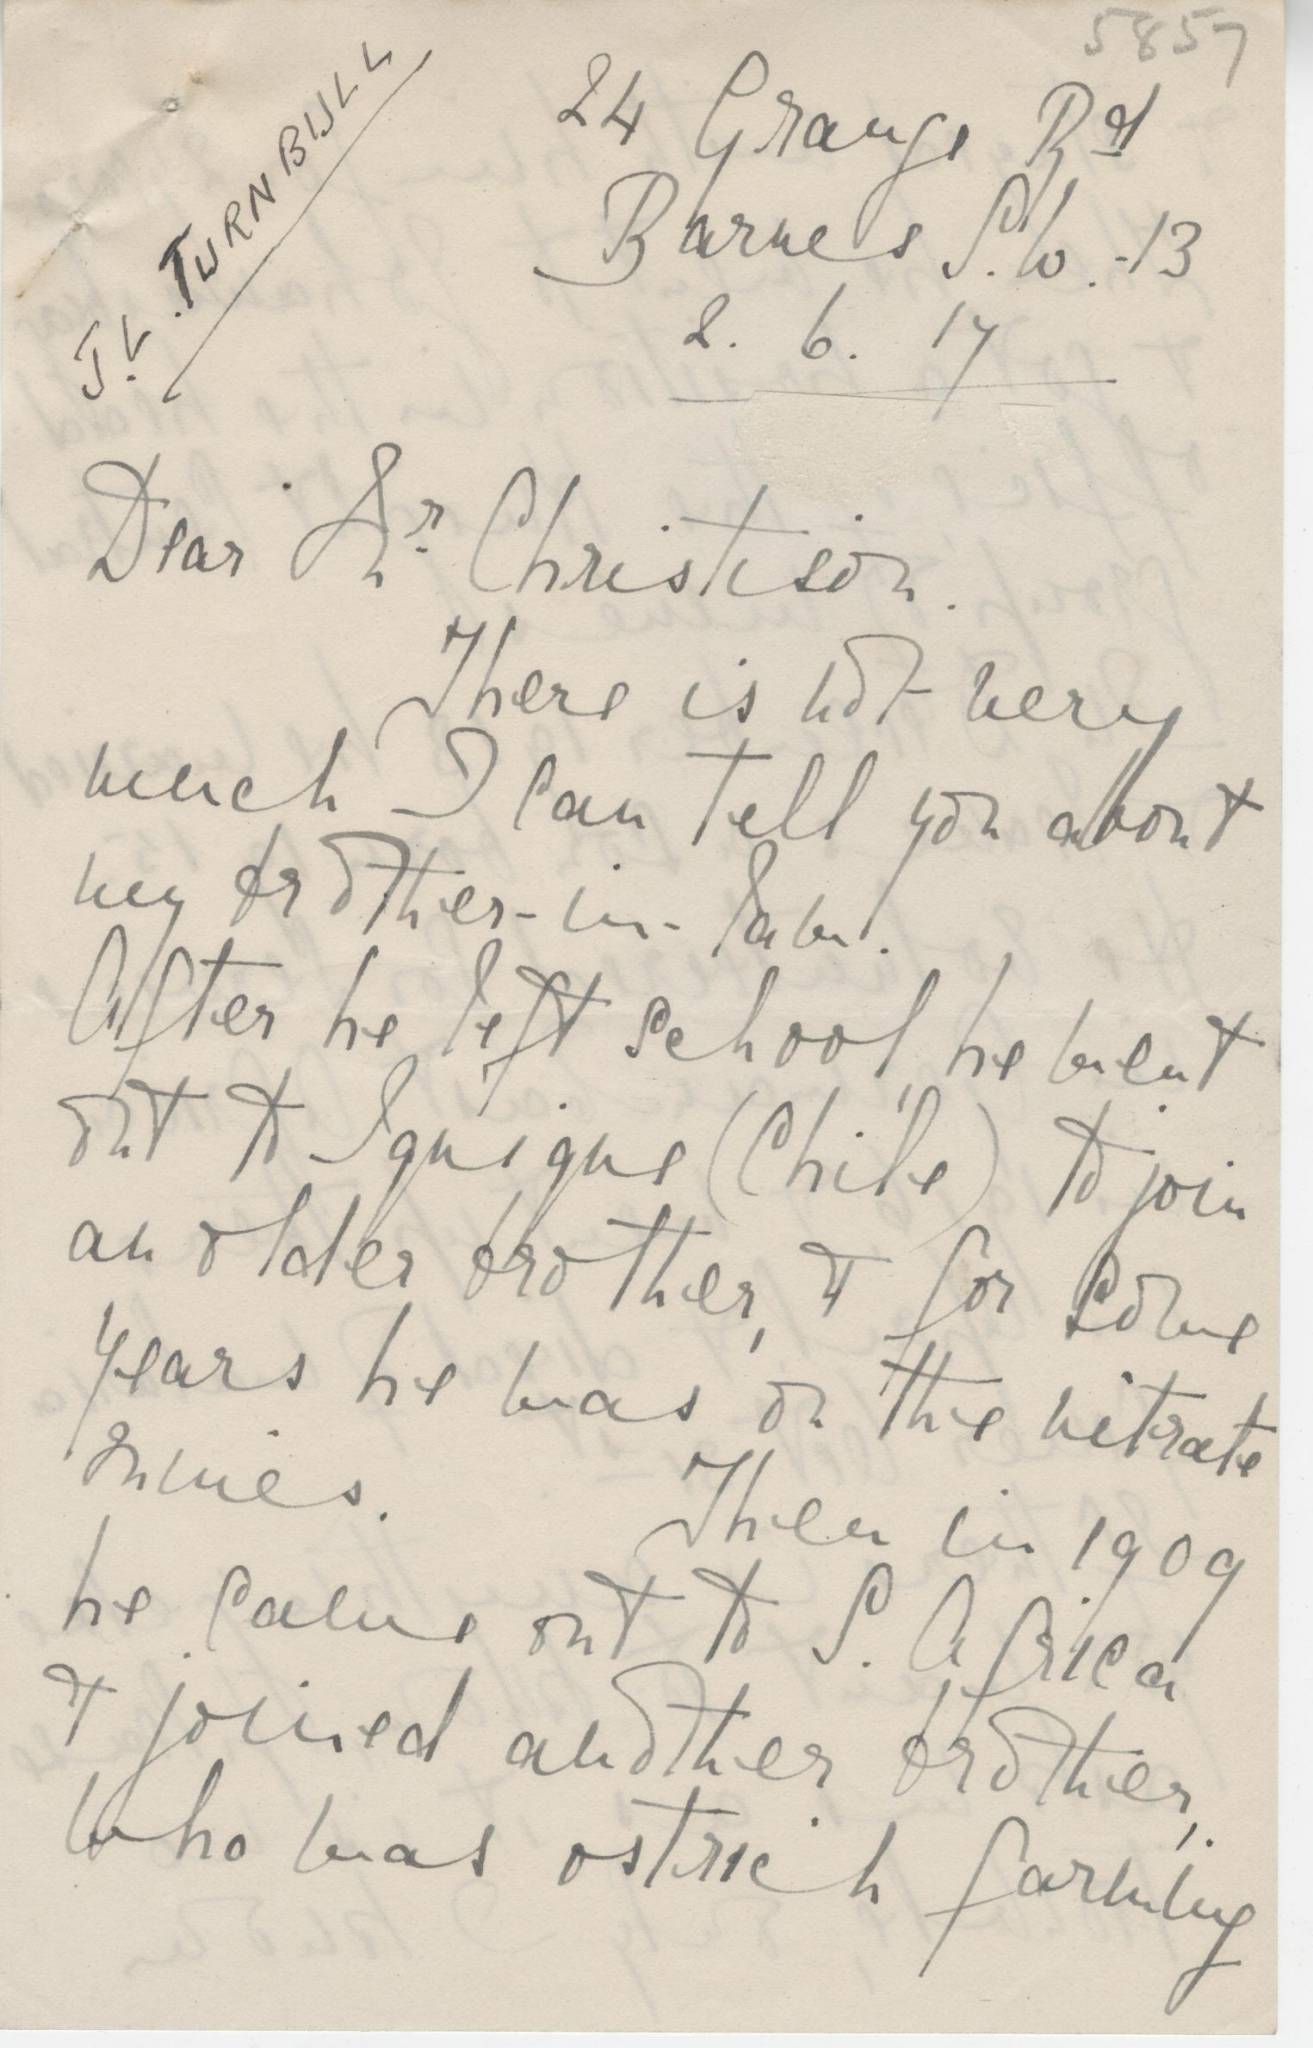 5857
J.L. TURNBULL
24 Grange Rd
Barnes S.W.-13
2. 6. 17
Dear Mr Christison.
There is not very
much I can tell you about
my brother-in-law.
After he left school, he went
out to Iquique (Chile) to join
an older brother, & for some
years he was on the nitrate
mines. Then in 1909
he came out to S. Africa
& joined another brother,
who was ostrich farming